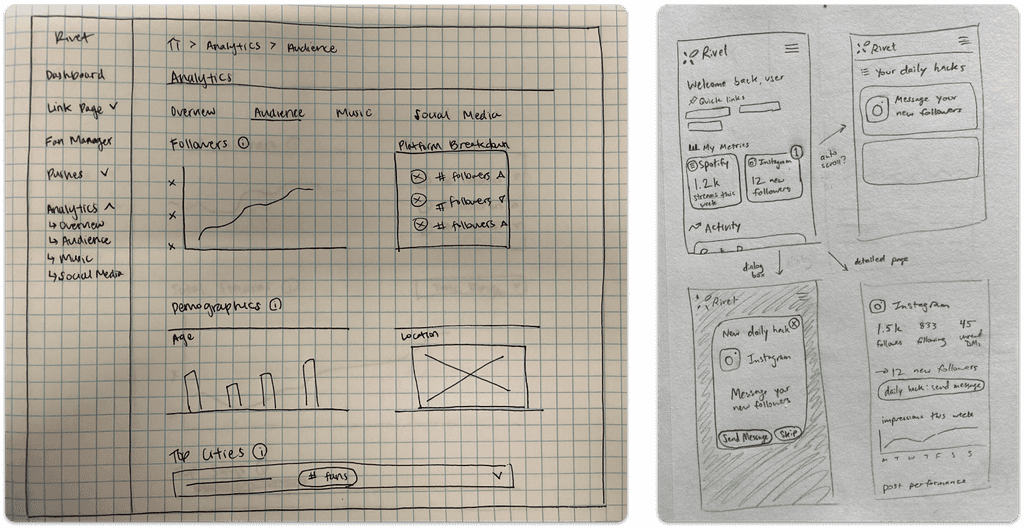 Rivet
Dashboard
Link Page
Fan Manager
Pushes
Analytics
Overview
Audience
Music
Social Media
> Analytics > Audience
Analytics
Overview Audience Music Social Media
Followers i
Platform Breakdown
# followers
# followers
# followers
Demographics i
Age
Location
Top Cities i
# fans
Rivet
Welcome back, user
Quick links
My Metrics
Spotify
1.2k
streams this
week
1
Instagram
12 new
followers
Activity
auto
scroll?
Rivet
Your daily hacks
Message your
new followers
dialog
box
detailed page
Rivet
New daily hack
Instagram
Message your
new followers
Send Message Skip
Instagram
1.5k 833 45
following unread
DMs
→12 new followers
daily hack: send message
impressions this week
M T W T F S S
post performance